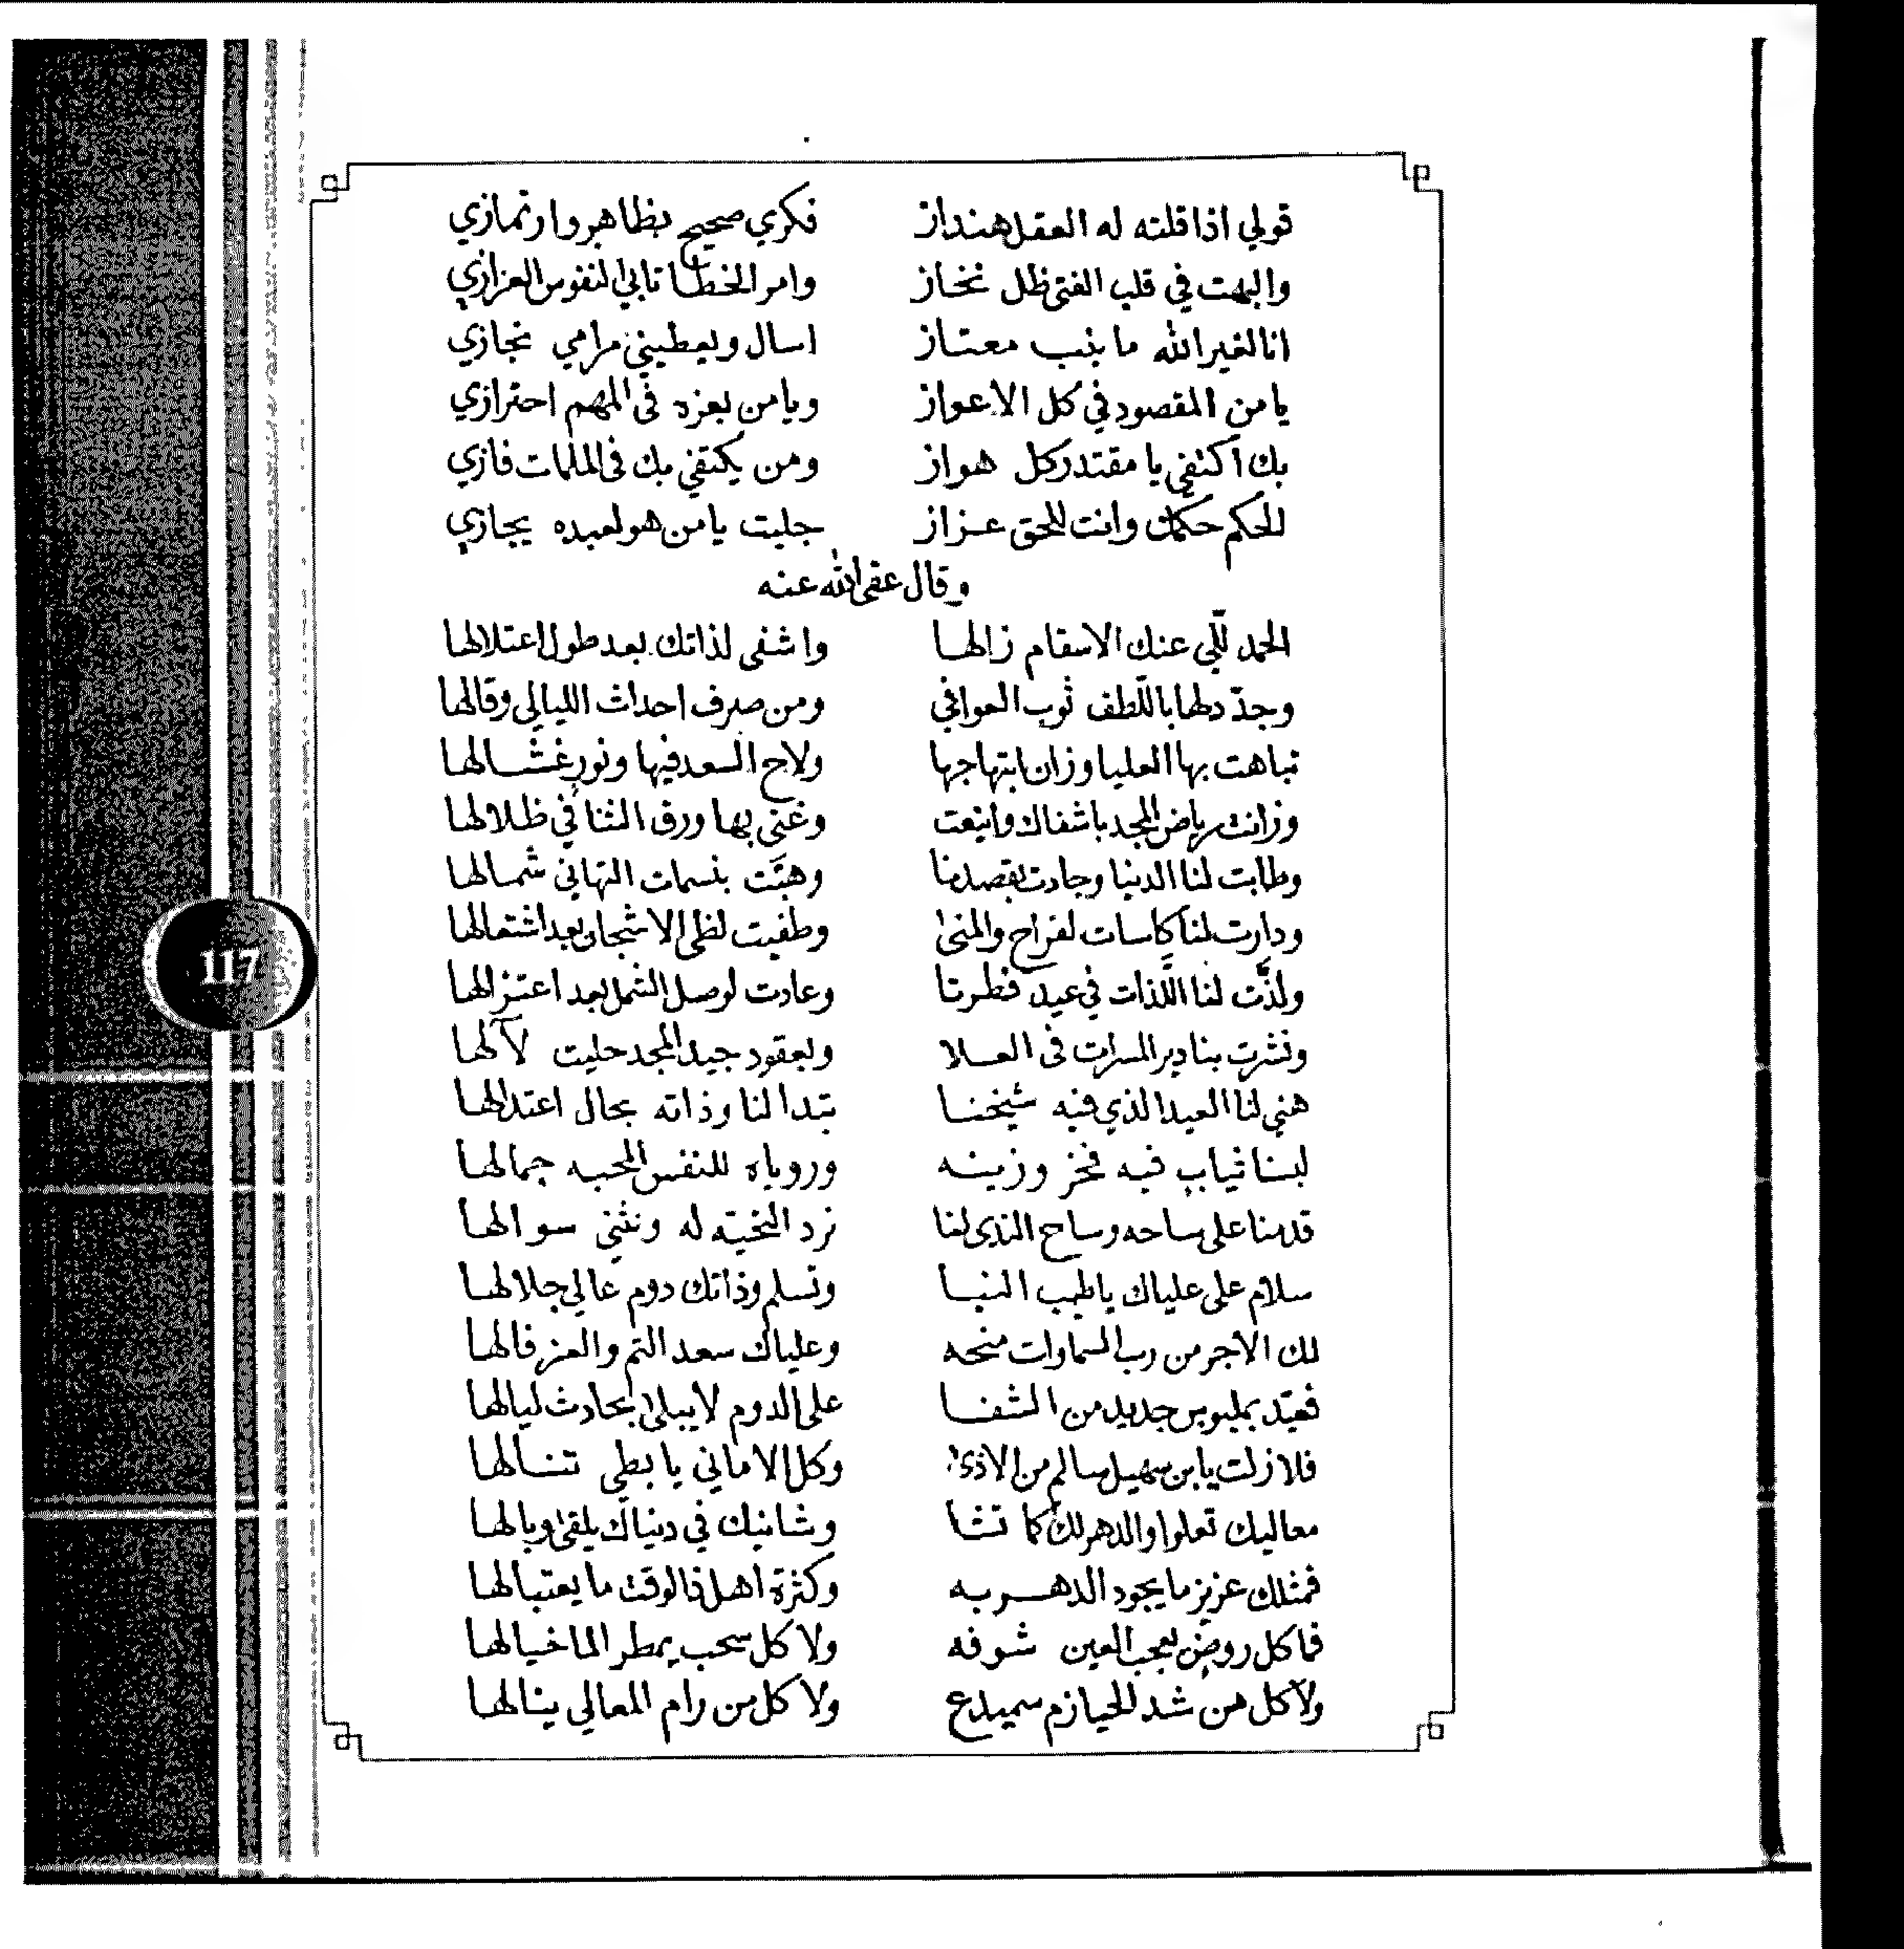 قولي اذا قلته له العقل هنداز فكري صحيح بظاهروا رتمازي
والبهت في قلب الفتى ظل نخاز وامر الخطا تابي النفوس العزازي
انا لغير الله ما بنب معتاز اسال ويعطيني مرامي نجازي
يا من المقصود في كل الاعواز ويا من بعزه فى المهم احترازي
بك اكتفي يا مقتدر كل هواز ومن يكتفي بك فى الملمات فازي
الحكم حكمك وانت للحق عزاز جليت يا من هو لعبده يجازي
وقال عفى الله عنه
الحمد للّي عنك الاسقام زالها واشفى لذاتك بعد طول اعتلالها
وجدّد لها باللّطف ثوب العوافي ومن صرف احداث الليالي وقالها
تباهت بها العليا وزان ابتهاجها ولاح السعد فيها ونور غشالها
وزانت رياض المجد باشفاك وانيعت وغنى بها ورق الثنا في ظلالها
وطابت لنا الدنيا وجادت بقصدنا وهبّت بنسمات التهاني شمالها
ودارت لنا كاسات لفراح والمنى وطفيت لظى الاشجان بعد اشتعالها
ولذّت لنا اللّذات في عيد فطرنا وعادت لوصل الشمل بعد اعتزالها
ونثرت بنا دير المسرات فى العلا وبعقود جيد المجد حليت لآلها
هني لنا العيد الذي فيه شيخنا تبدا لنا وذاته بحال اعتدالها
لبسنا ثياب فيه فخر وزينه وروياه للنفس المحبه جمالها
قدمنا على ساحه وساح الندى لنا نرد التحيته له ونثني سوالها
سلام على علياك يا طيب النبا وتسلم وذاتك دوم عالي جلالها
لك الاجر من رب السماوات منحه وعلياك سعد التم والعز فالها
فعيّد بملبوس جديد من الشفا على الدوم لا يبلى بحادث ليالها
فلا زلت يا بن سهيل سالم من الاذى وكل الاماني يا بطي تنالها
معاليك تعلوا والدهر لك كما تشا وشانيك في دنياك يلقى وبالها
فمثلك عزيز ما يجود الدهر به وكثرة اهل ذا الوقت ما يعتبالها
فما كل روض يعجب العين شوفه ولا كل سحب يمطر الما خيالها
ولا كل من شد الحيازم سميدع ولا كل من رام المعالي ينالها
117